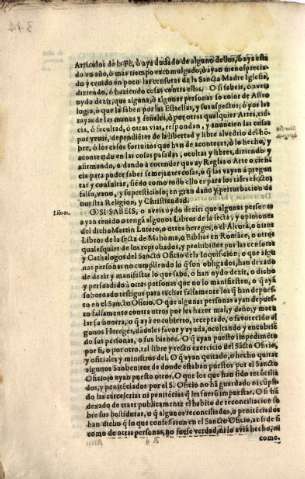 Articulos de la Fè, ò aya dudado de alguno dellos, ò aya estado
vn año, ò mas tiempo excomulgado, ò ayan menospreciado
y tenido en poco las censuras de la Sancta Madre Iglesia,
diziendo, ò haziendo cosas contra ellas. O si sabeis, ò aveis
oydo dezir, que alguna, ò algunas personas so color de Astrologia,
ò que lo saben por las Estrellas, y sus aspectos, ò por las
rayas de las manos y señales, ò por otras qualquier Artes, ciencia,
ò facultad, ò otras vias, respondan, y anuncien las cosas
por venir, dependientes de la libertad y libre alvedrio del hombre,
ò los casos fortuitos que han de acontecer, ò lo hecho, y
acontecido en las cosas passadas, ocultas y libres, diziendo y
afirmando, ò dando à entender que ay Reglas ò Arte ò ciencia
para poder saber semejantes cosas, ò q las vayan à preguntar
y consultar, siendo como es
vano, y supersticioso, en gran daño y perturbacion de
nuestra Religion, y Christiandad.
Libros. O SI SABEIS, ò aveis oydo dezir que algunas personas
ayan tenido ò tenga algunos Libros de la secta, y opiniones
del dicho Martin Lutero, ò otros hereges, ò el Alcoran, ò otros
Libros de la secta de Mahoma, ò Biblias en Romance, ò otros
qualesquier de los reprobados, y prohibidos por las censuras
y Cathalogos del Sancto Oficio de la Inquisicion; ò que algunas
personas no cumpliendo lo q son obligados, han dexado
de dezir y manifestar lo que saben, ò han oydo dezir, ò dicho
y persuadido à otras personas que no lo manifiesten, ò q ayan
sobornado testigos para tachar falsamente los q han depuesto
en el Sancto Oficio. O que algunas personas ayan depuesto
falsamente contra otros por les hazer mal, y daño, y
 ò que aya encubierto, receptado, ò favorecido
algunos Hereges, dandoles favor y ayuda, ocultando y encubriendo
sus personas, ò sus bienes. O q ayan puesto impedimento
por si, ò por otros, al libre y recto exercicio del Sãcto Oficio,
y oficiales y ministros del. O q ayan quitado, ò hecho quitar
algunos sanbenitos de donde estaban puestos por el Sancto
Oficio, ò ayan puesto otros. O que los que han sido reconciliados,
y penitenciados por el S. Oficio no hã guardado ni cumplido
las carcelerias ni penitencias q les fuerõ impuestas. O si hã
dexado de traer publicamente el habito de reconciliacion sobre
sus vestiduras, ò q algunos reconciliados, ò penitenciados
han dicho q lo que confessaron en el S. Oficio, ansi de si
como de otras personas, no fuesse verdad, ni lo avia hecho, ni
como.